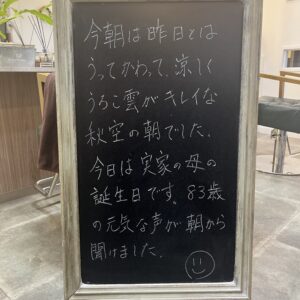 今朝は昨日とは
うってかわって、涼しく
うろこ雲がキレイな
秋空の朝でした。
今日は実家の母の
誕生日です。83歳
の元気な声が朝から
聞けました。